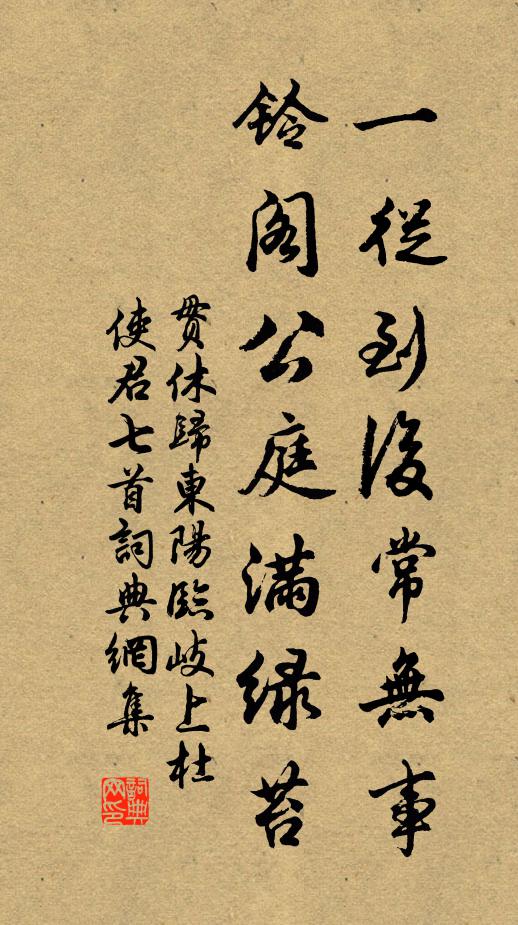 一從到後常無事
鈴閣公庭滿綠苔
貫休歸東陽臨岐上杜
使君七首詞典網集
詞典
网印